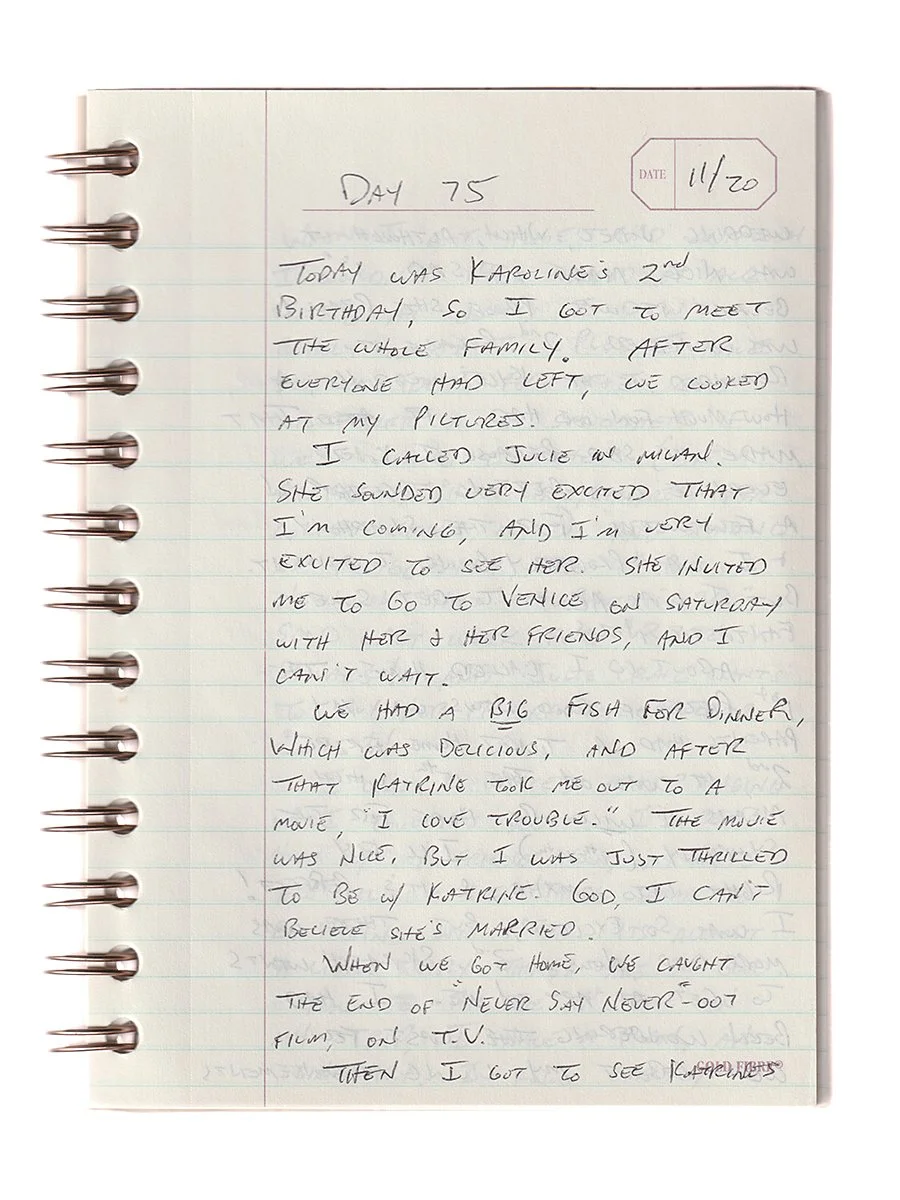 DAY 75
DATE 11/20
TODAY WAS KAROLINE'S 2nd
BIRTHDAY, SO I GOT TO MEET
THE WHOLE FAMILY. AFTER
EVERYONE HAD LEFT, WE LOOKED
AT MY PICTURES.
I CALLED JULIE IN MILAN.
SHE SOUNDED VERY EXCITED THAT
I'M COMING, AND I'M VERY
EXCITED TO SEE HER. SHE INVITED
ME TO GO TO VENICE ON SATURDAY
WITH HER & HER FRIENDS, AND I
CAN'T WAIT.
WE HAD A BIG FISH FOR DINNER,
WHICH WAS DELICIOUS, AND AFTER
THAT KATRINE TOOK ME OUT TO A
MOVIE, "I LOVE TROUBLE." THE MOVIE
WAS NICE, BUT I WAS JUST THRILLED
TO BE W/ KATRINE. GOD, I CAN'T
BELIEVE SHE'S MARRIED.
WHEN WE GOT HOME, WE CAUGHT
THE END OF "NEVER SAY NEVER"-007
FILM, ON T.V.
THEN I GOT TO SEE KATRINE'S
GOLD FIBRE®